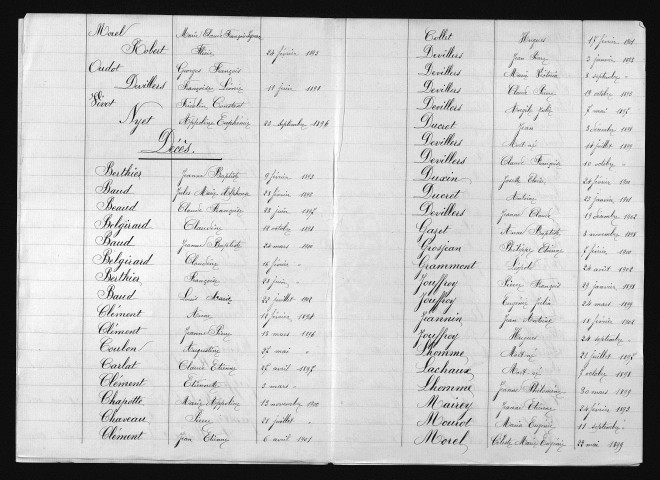 Morel Marie Claude François
Robert 24 février 1893
Oudot Georges François
Devillers Françoise 18 juin 1898
Vivot Nicolas Constant
Nyet Appoline Euphémie 22 septembre 1896
Décès.
Berthier Jeanne Baptiste 9 février 1893
Baud Jules Marie Alphonse 23 février
Beaud Claude François 28 juin 1897
Belgirard Claudine 18 octobre 1898
Baud Jeanne Baptiste 20 mars 1900
Belgirard Claudine 16 février "
Berthier Françoise juin "
Baud Marie 22 juillet 1902
Clément Anne 18 février 1894
Clément Jeanne 13 mars 1896
Coulon Augustine mai "
Carlat Claude Etienne 27 avril 1897
Clément Etiennette 2 mars "
Chapotte Marie Appoline 13 novembre 1900
Chaveau Pierre 21 juillet "
Clément Jean Etienne 6 avril 1901
Collet Hugues 17 février 1901
Devillers Jean Pierre 2 janvier 1893
Devillers Marie Victoire 8 septembre "
Devillers Claude Pierre 19 octobre
Devillers Angèle Julie 7 mai 1895
Ducret Jean
Devillers Mort-né 16 juillet 1899
Devillers Claude François 10 octobre "
Duxin Joseph 1900
Ducrot Antoine 12 janvier 1901
Devillers Jeanne Claude 13 décembre 1902
Gazet Anne Baptiste 2 novembre 1898
Grosjean Philippe Etienne février 1900
Grammont Léopold 24 août 1902
Jouffroy Pierre François 29 janvier 1898
Jouffroy Eugénie Julia 24 mars 1899
Jeannin Jean Antoine 18 février
Jouffroy Hugues 24 septembre "
Lhomme Mort-né 21 juillet 1897
Lachaux Mort-né octobre 1898
Lhomme Jeanne Philomène 30 mars 1899
Mairey Jeanne Etienne 24 février 1893
Mourot Marie Eugénie 11 septembre "
Morel Célestine Marie Eugénie 22 mai 1899